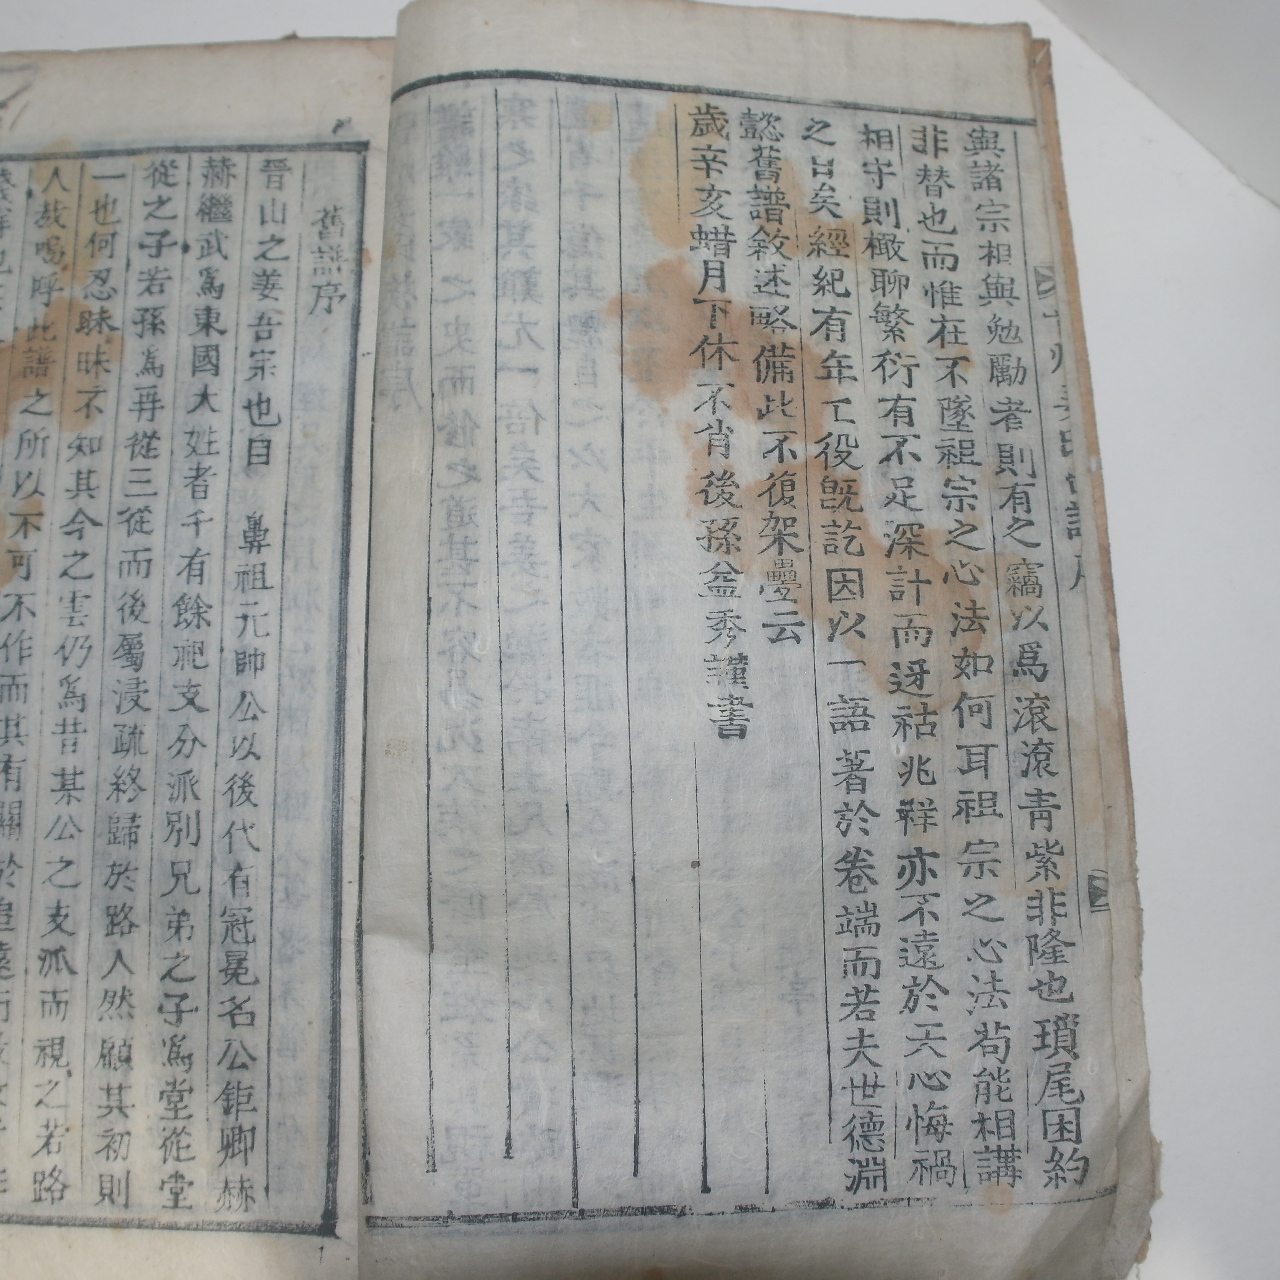 與諸宗相與勉勵者則有之竊以爲滾滾靑紫非隆也瑣尾困約
非替也而惟在不墜祖宗之心法如何耳祖宗之心法苟能相講
相守則椒聊繁衍有不足深計而迓祜兆祥亦不遠於天心悔禍
之日矣經紀有年工役旣訖因以一語著於卷端而若夫世德淵
懿舊譜敘述略備此不復架疊云
歲辛亥蜡月下休不肖後孫益秀謹書
舊譜序
晉山之姜吾宗也自 鼻祖元帥公以後代有冠冕名公鉅卿赫
赫繼武爲東國大姓者千有餘祀支分派別兄弟之子爲堂從堂
從之子若孫爲再從三從而後屬浸疏終歸於路人然顧其初則
一也何忍昧昧不知其今之雲仍爲昔某公之支派而視之若路
人哉嗚呼此譜之所以不可不作而其有關於追遠而